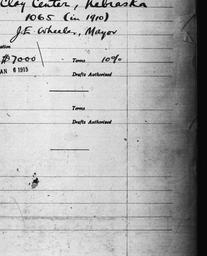 Clay Center, Nebraska
1065 (in 1910)
J.E. Wheeler, Mayor
$7000 Terms 10%
JAN 6 1913 Drafts Authorized
Terms
Drafts Authorized